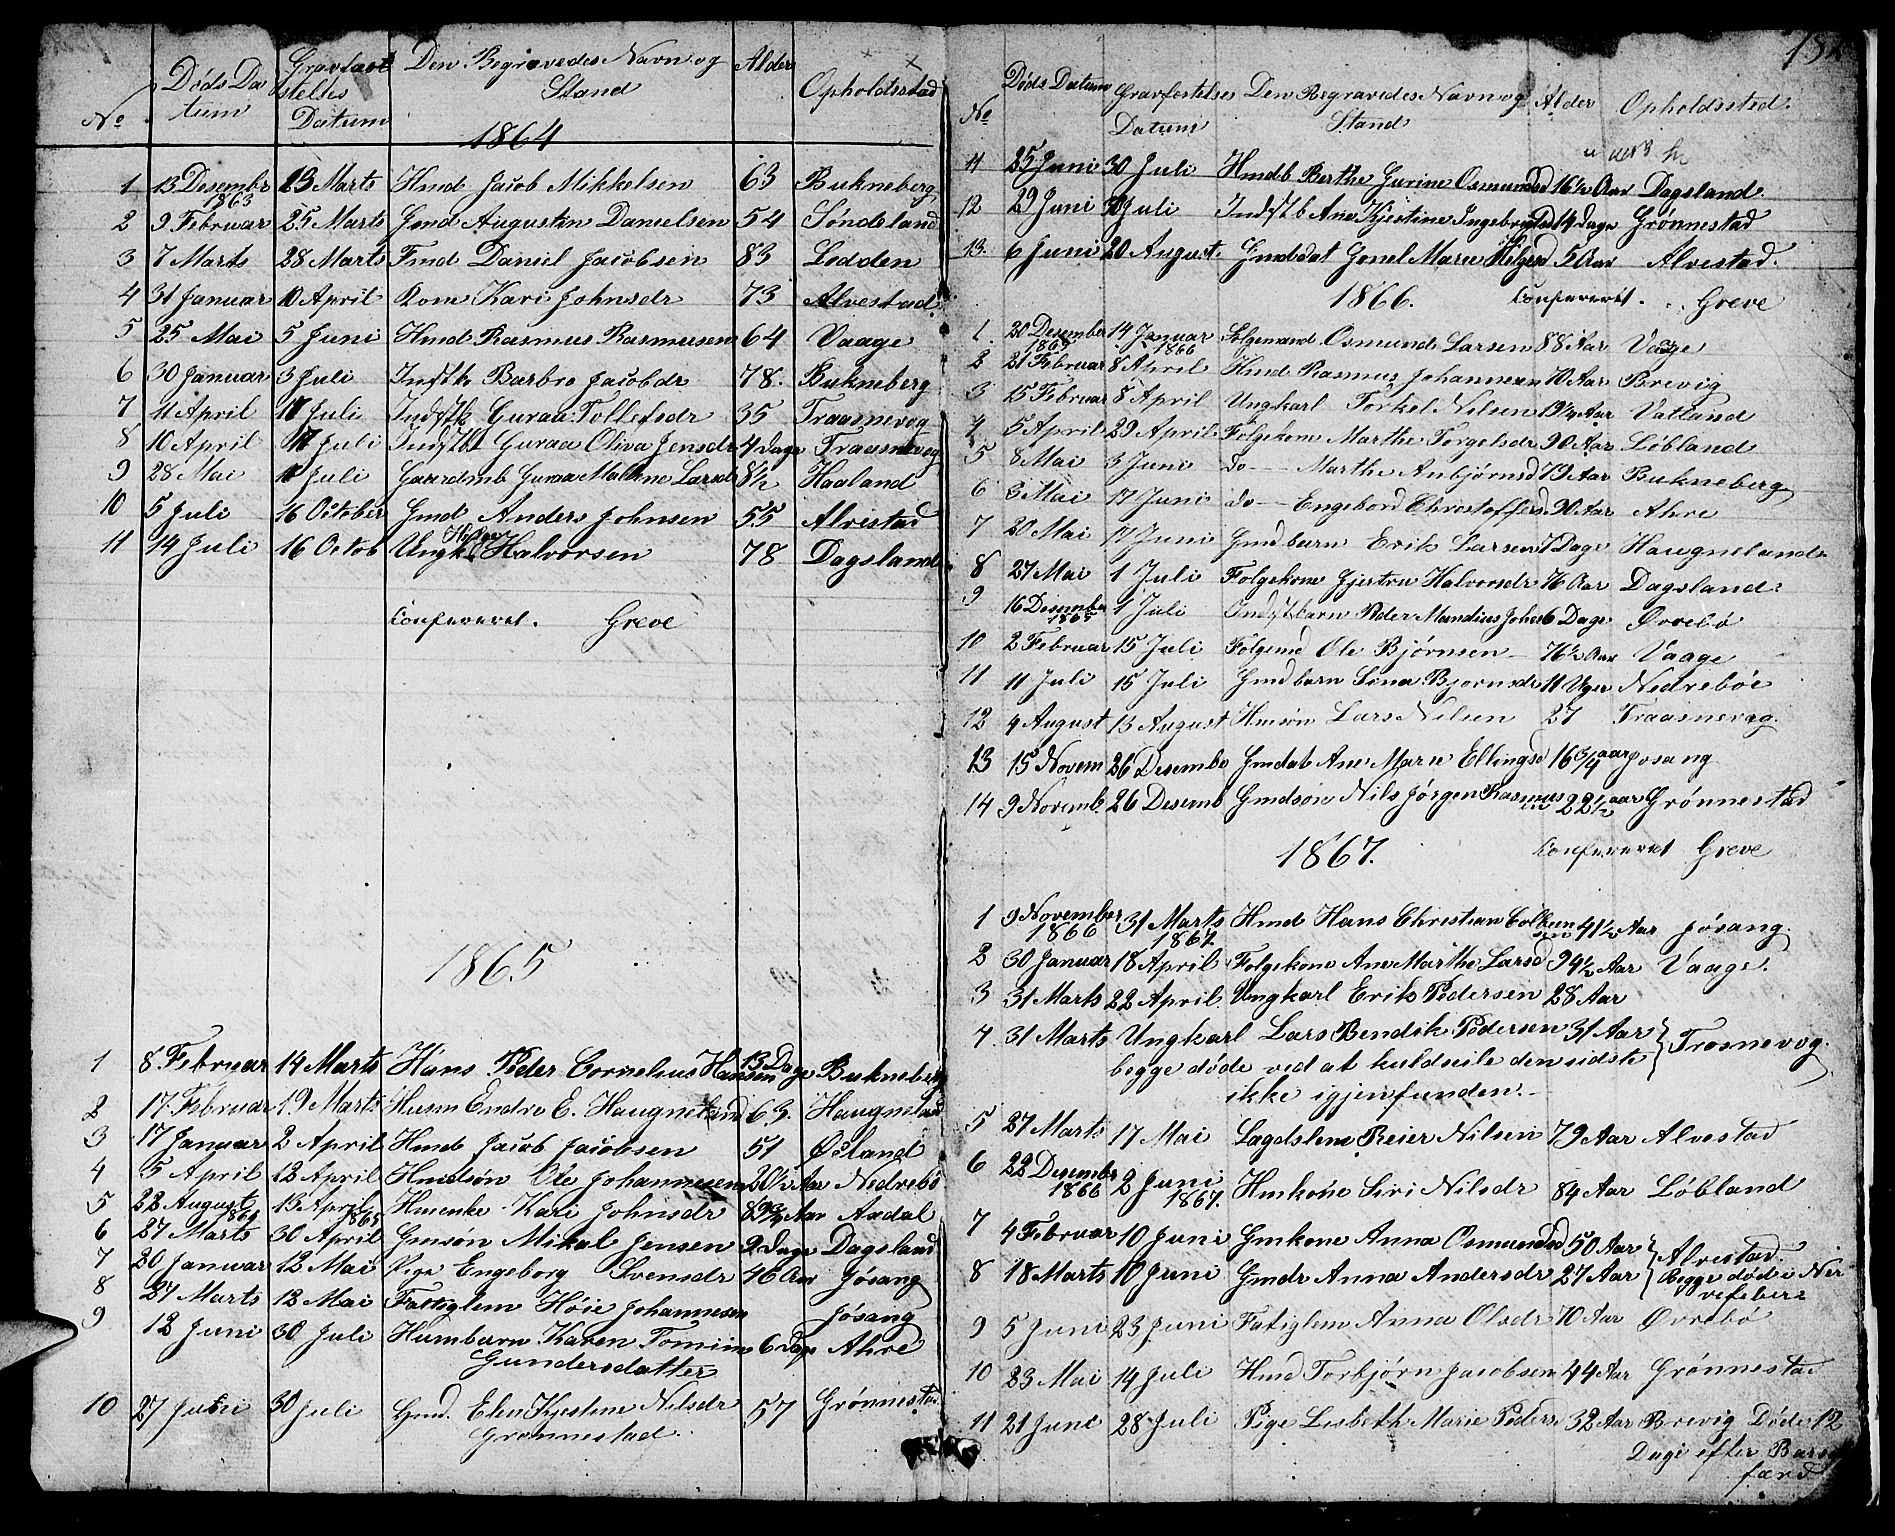 No Døds Datum Gravfæstelses Datum Den Begravedes Navn og Stand Alder Opholdsstad
1864
1 13 Desembr 1863 13 Marts Hmd Jacob Mikkelsen 63 Bukneberg
2 9 Februar 25 Marts Gmd Augustin Danielsen 54 Søndeland
3 7 Marts 28 Marts Fmd Daniel Jacobsen 83 Lodden
4 31 Januar 10 April Kone Kari Johnsdr 73 Alvestad
5 25 Mai 5 Juni Hmd Rasmus Rasmussen 64 Vaage
6 30 Januar 3 Juli Indstk Barbro Jacobdr 78. Bukneberg
7 11 April 17 Juli Indstk Guraa Tollefsdr 35 Traasnevog
8 10 April 17 Juli Indstb Guraa Oliva Jensdr 4 Dage Traasnevog
9 28 Mai 10 Juli Gaardmb Guraa Malene Larsd 8½ Haaland
10 5 Juli 16 October Gmd Anders Johnsen 55 Alvestad
11 14 Juli 16 Octob Ungk Helge Halvorsen 78 Dagsland
Confereret. Greve
1865
1 8 Februar 14 Marts Hans Peder Cornelius Hansen 13 Dage Bukneberg
2 17 Februar 19 Marts Husm Endre E. Haugneland 63. Haugneland
3 17 Januar 2 April Hmd Jacob Jacobsen 51 Øeland
4 5 April 12 April Hmdsøn Ole Johannesen 20½ Aar Nedrebø
5 22 August 1864 13 April 1865 Hmenke Kari Johnsdr Aar Aadal
6 27 Marts 30 April Gmsøn Mikal Jensen 2 Dage Dagsland
7 20 Januar 12 Mai Pige Engeborg Svensdr 46 Aar Jøsang
8 27 Marts 12 Mai Fattiglem Høie Johannesen Jøsang
9 12 Juni 30 Juli Husmbarn Karen Tomine 6 Dage Ahre
Gundersdatter
10 27 Juni 30 Juli Gmd. Elen Kjestine Nilsdr 57 Grønnestad
Grønnestad
132
No Døds Datum Gravfestelses Datum Den Begravedes Navn og Stand Alder Opholdssted
11 25 Juni 30 Juli Hmdb Berthe Gurine Osmundsd 16½ Aar Dagsland
12 29 Juni 30 Juli Indstb Ane Kjestine Ingebrigtsd 14 Dage Grønnestad
13. 6 Juni 20 August. Gmddat Gonel Marie Helgesd 5 Aar Alvestad.
1866. Confereret. Greve
1. 20 Desember 1865 14 Januar 1866 Følgemand Osmund Larsen 88 Aar Vaage
2 21 Februar 8 April Hmd Rasmus Johannesen 70 Aar Brevig
3 15 Februar 8 April Ungkarl Torkel Nilsen 19½ Aar Vatland
4 5 April 29 April Følgekone Marthe Torgelsdr 90 Aar Løbland
5 8 Mai 3 Juni do — Marthe Anbjørnsd 79 Aar Bukneberg
6 3 Mai 17 Juni do — Engebord Christoffersd 90 Aar Ahre
7 20 Mai 17 Juni Gmdbarn Erik Larsen 7 Dage Haugneland
8 27 Mai 1 Juli Følgekone Gjertru Halvorsdr 76 Aar Dagsland
9 16 Desember 1865 1 Juli Indstbarn Peder Mandius Johs 6 Dage Øvrebø
10 2 Februar 15 Juli Følgemd Ole Bjørnsen 76½ Aar Vaage
11 11 Juli 15 Juli Gmdbarn Sina Bjornsdr 11 Uger Nedrebøe
12 4 August 13 August Hmsøn Lars Nilsen 27 Traasnevog.
13 15 Novem 26 Desembe Gmdat Ane Marie Ellingsd 16 3/4 aar Josang
14 9 Novemb. 26 Desemb Gmdsøn Nils Jørgen Rasmussen 22½ aar Grønnestad
1867. Confereret Greve
1 9 November 1866 31 Marts 1867 Hmd Hans Christian 41½ Aar Jøsang.
2 30 Januar 18 April Følgekone Ane Marthe Larsd 94½ Aar Vaage.
3 31 Marts 22 April Ungkarl Erik Pedersen 28 Aar
4 31 Marts Ungkarl Lars Bendik Pedersen 31 Aar Trosnevog.
begge døde ved at kuldseile den sidste
ikke igjenfunden.
5 27 Marts 17 Mai Lagdslem Reier Nilsen 79 Aar Alvestad
6 22 Desembr 1866 2 Juni 1867. Hmkone Siri Nilsdr 84 Aar Løbland
7 4 Februar 10 Juni Gmkone Anna Osmundsd 50 Aar Alvestad
8 18 Marts 10 Juni Gmdr Anna Andersdr 27 Aar Begge død i Ner
vefeber
9 5 Juni 23 Juni Fatiglem Anna Olsdr 70 Aar Øvrebø
10 23 Mai 14 Juli Hmd Torbjørn Jacobsen 44 Aar Grønnestad
11 21 Juni 28 Juli Pige Lisbeth Marie Peders 32 Aar Brevig Døde 12
Dage efter Barse
færd